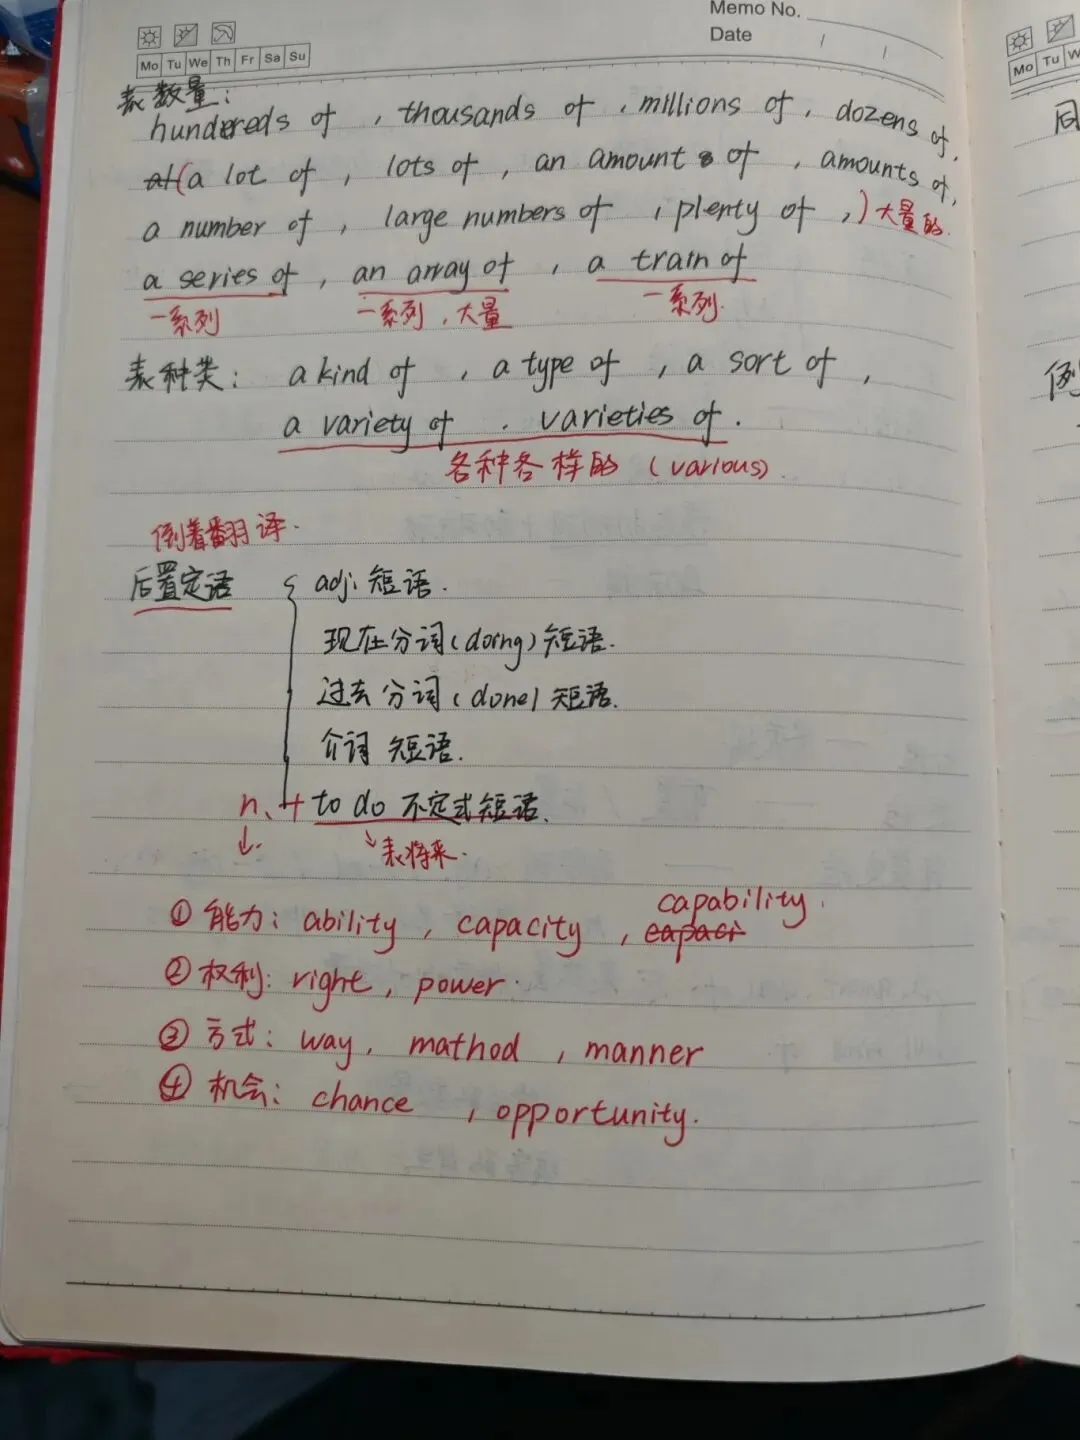 Memo No.
Date / /
Mo Tu We Th Fr Sa Su
表数量:
hundereds of , thousands of , millions of , dozens of,
(a lot of , lots of , an amount of , amounts of,
a number of , large numbers of , plenty of , ) 大量的.
a series of , an array of , a train of
一系列 一系列,大量 一系列.
表种类: a kind of , a type of , a sort of ,
a variety of . varieties of .
各种各样的 (various).
倒着翻译.
后置定语 { adj. 短语.
现在分词(doing)短语.
过去分词(done)短语.
介词 短语.
n. + to do 不定式短语.
↓ ↘表将来.
capability.
① 能力: ability , capacity , capaci
② 权利: right , power.
③ 方式: way , mathod , manner
④ 机会: chance , opportunity.
Mo Tu W
同
倒